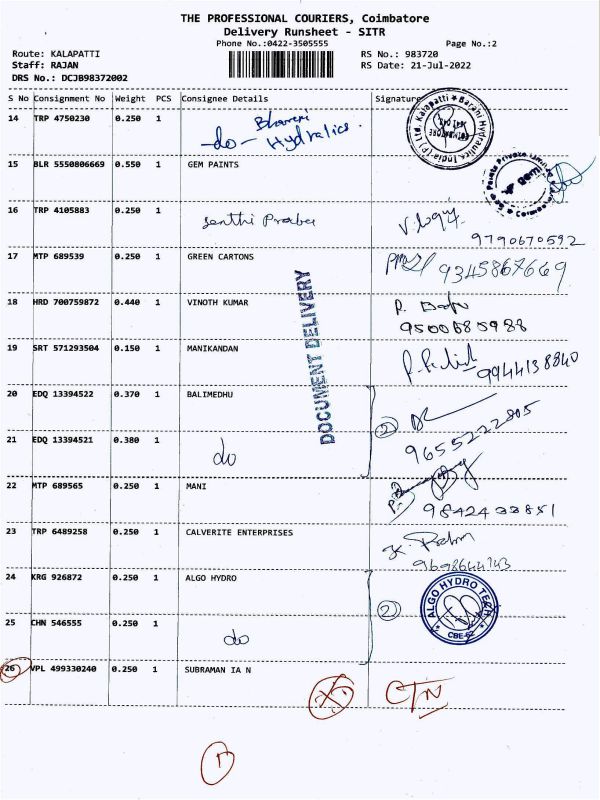 THE PROFESSIONAL COURIERS, Coimbatore
Delivery Runsheet - SITR
Phone No.:0422-3505555 Page No.:2
Route: KALAPATTI RS No.: 983720
Staff: RAJAN RS Date: 21-Jul-2022
DRS No.: DCJB98372002
S No Consignment No Weight PCS Consignee Details Signature
14 TRP 4750230 0.250 1
do - Hydralics
15 BLR 5550806669 0.550 1 GEM PAINTS
16 TRP 4105883 0.250 1 Senthi Praba
9790670592
17 MTP 689539 0.250 1 GREEN CARTONS 9345867669
18 HRD 700759872 0.440 1 VINOTH KUMAR
9500685988
19 SRT 571293504 0.150 1 MANIKANDAN
9944138840
DOCUMENT DELIVERY
20 EDQ 13394522 0.370 1 BALIMEDHU
2
21 EDQ 13394521 0.380 1 do 9655222805
22 MTP 689565 0.250 1 MANI
9842433851
23 TRP 6489258 0.250 1 CALVERITE ENTERPRISES
9698644743
24 KRG 926872 0.250 1 ALGO HYDRO
2 ALGO HYDRO TECH CBE-62
25 CHN 546555 0.250 1 do
26 VPL 499330240 0.250 1 SUBRAMAN IA N
X CTN
1